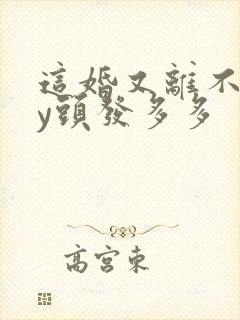 這婚又離不
y頭發多多
高宮東